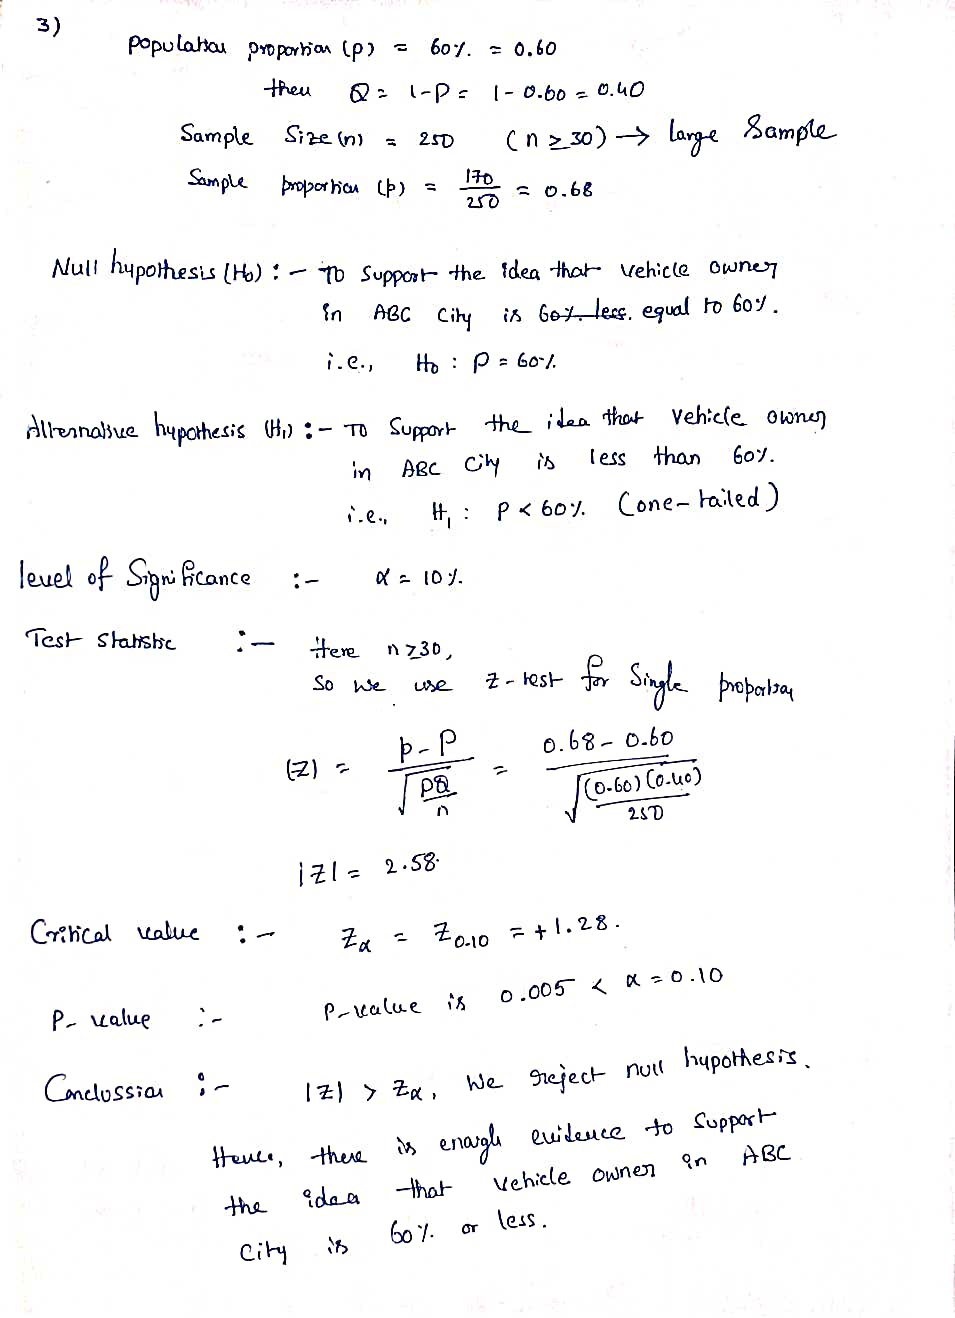 3)
Population proportion (P) = 60%. = 0.60
then Q = 1-P = 1 - 0.60 = 0.40
Sample Size (n) = 250 (n ≥ 30) → large Sample
Sample proportion (p) = 170/250 = 0.68
Null hypothesis (H₀) :- To Support the idea that vehicle owner
in ABC City is 60% less. equal to 60%.
i.e., H₀ : P = 60%.
Alternative hypothesis (H₁) :- To Support the idea that vehicle owner
in ABC City is less than 60%.
i.e., H₁ : P < 60%. (one-tailed)
level of Significance :- α = 10%.
Test Statistic :- Here n ≥ 30,
So we use Z-test for Single proportion
(Z) = p-P/√(PQ/n) = 0.68-0.60/√((0.60)(0.40)/250)
|Z| = 2.58.
Critical value :- Zα = Z0.10 = +1.28.
P-value :- P-value is 0.005 < α = 0.10
Conclussion :- |Z| > Zα, We reject null hypothesis.
Hence, there is enough evidence to Support
the idea that vehicle owner in ABC
City is 60% or less.